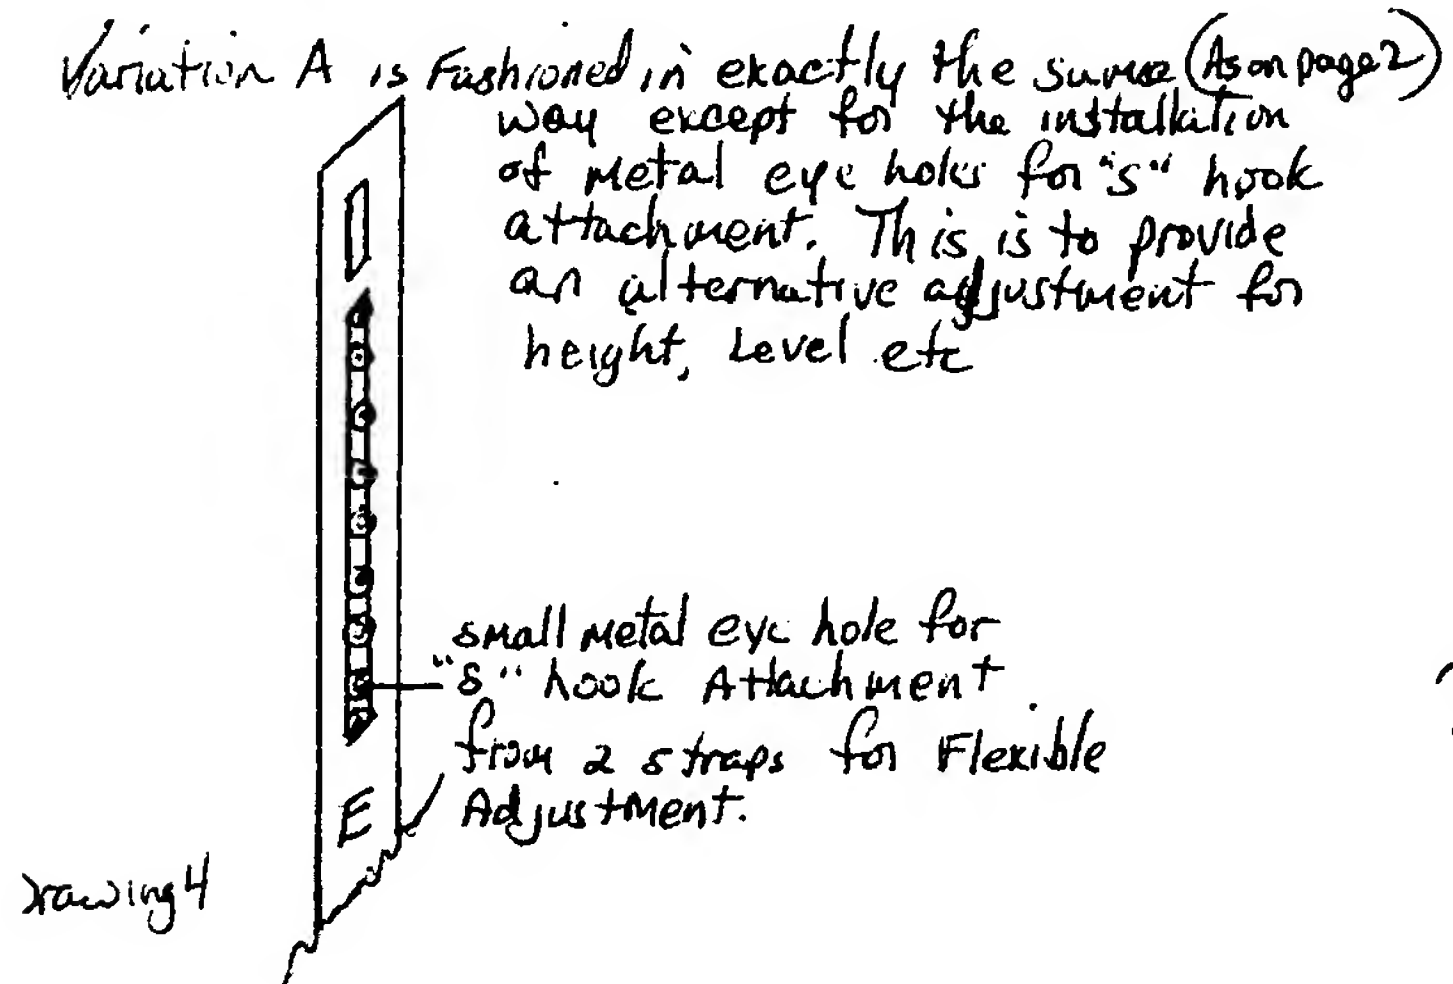 Variation A is Fashioned in exactly the same (As on page 2)
way except for the installation
of metal eye holes for "S" hook
attachment. This is to provide
an alternative adjustment for
height, Level etc
small metal eye hole for
"S" hook Attachment
from 2 straps for Flexible
Adjustment.
E
Drawing 4